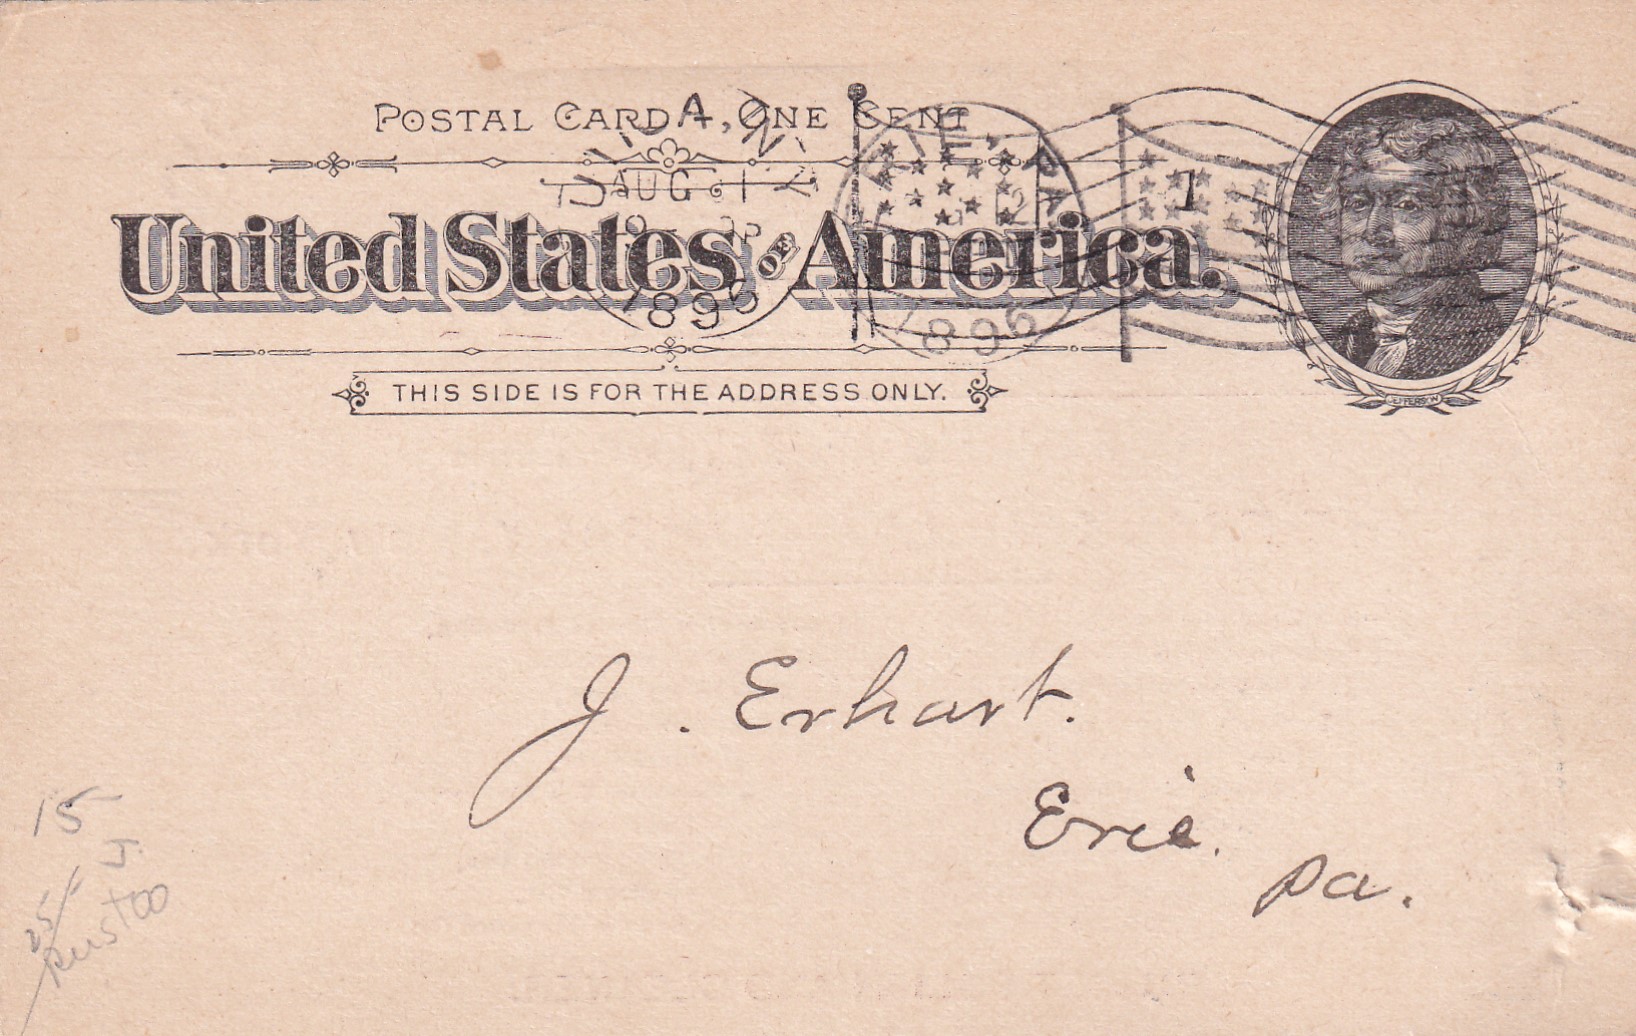 POSTAL CARD, ONE CENT
AUG
United States OF America.
1896
1896
1
THIS SIDE IS FOR THE ADDRESS ONLY.
JEFFERSON
J. Erhart.
Erie.
Pa.
15
J.
25/